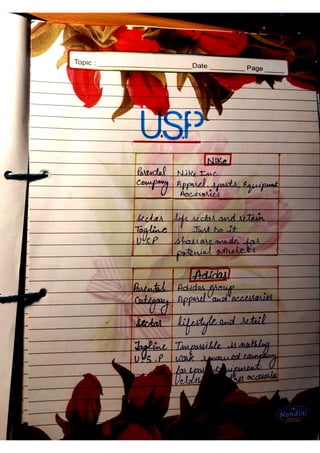 Topic : Date Page
USP
Nike
Parental Nike Inc
Company Apparel, sports, Equipment
Accesories
Sector life sector and retain
Tagline Just Do it
U.S.P shoes are made for
potenial atheletes
Adidas
Parental Adidas group
Category Apparel and accessories
Sector lifestyle and retail
Tagline Impossible is nothing
U.S.P work renowed company
for equipment
accessories
Nandini